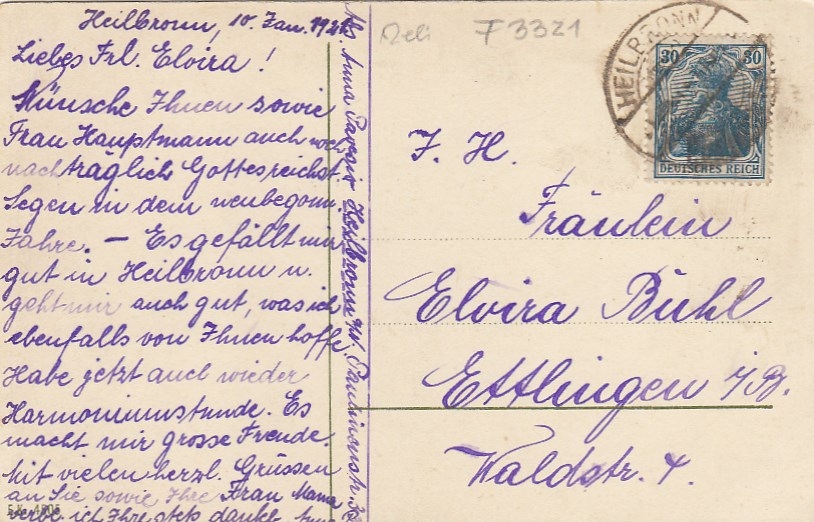 Heilbronn, 10. Jan. 192
Liebes Frl. Elvira!
Wünsche Ihnen sowie
Frau Hauptmann auch noch
nachträglich Gottesreichst.
Segen in dem neubegonn.
Jahre. — Es gefällt mir
gut in Heilbronn u.
geht mir auch gut, was ich
ebenfalls von Ihnen hoffe.
Habe jetzt auch wieder
Harmoniumstunde. Es
macht mir grosse Freude.
Mit vielen herzl. Grüssen
an Sie sowie Ihre Frau Mama
verbl. ich Ihre stets dankb.
Abs. Anna Heilbronn a/N. Paulinenstr.
5K. 4805
Meli F 3321
HEILBRONN
30 30
DEUTSCHES REICH
I. H.
Fräulein
Elvira Bühl
Ettlingen i/B.
Waldstr. 4.